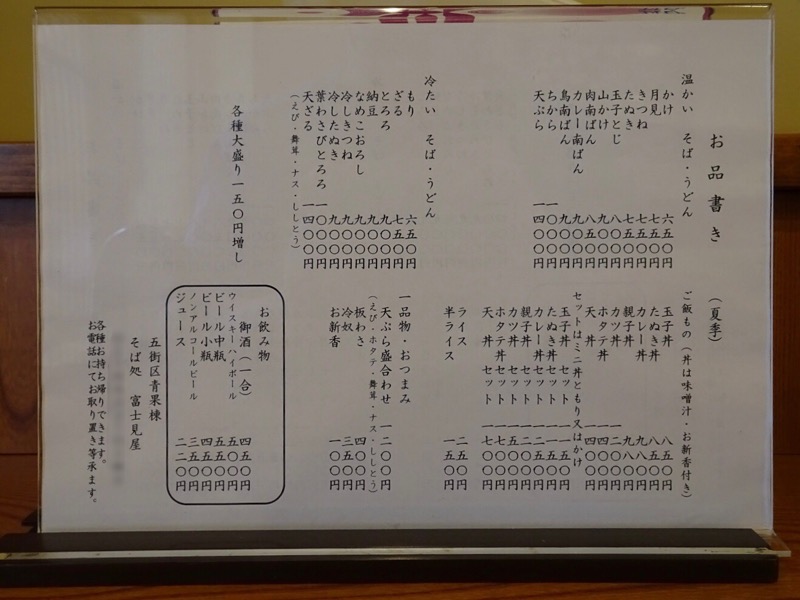 お品書き (夏季)
温かい そば・うどん
かけ 六五〇円
月見 七五〇円
きつね 七五〇円
たぬき 七五〇円
玉子とじ 八〇〇円
山かけ 九〇〇円
肉南ばん 八五〇円
カレー南ばん 九〇〇円
鳥南ばん 九〇〇円
ちから 一〇〇〇円
天ぷら 一四〇〇円
冷たい そば・うどん
もり 六五〇円
ざる 七五〇円
とろろ 九〇〇円
納豆 九〇〇円
なめこおろし 九〇〇円
冷しきつね 九〇〇円
冷したぬき 九〇〇円
葉わさびとろろ 一〇〇〇円
天ざる 一四〇〇円
(えび・舞茸・ナス・ししとう)
各種大盛り一五〇円増し
ご飯もの(丼は味噌汁・お新香付き)
玉子丼 八五〇円
たぬき丼 八五〇円
カレー丼
親子丼
カツ丼 一二〇〇円
ホタテ丼 一四〇〇円
天丼 一四〇〇円
セットはミニ丼ともり又はかけ
玉子丼 セット 一一五〇円
たぬき丼 セット 一一五〇円
カレー丼 セット
親子丼 セット
カツ丼 セット 一五〇〇円
ホタテ丼セット 一七〇〇円
天丼 セット 一七〇〇円
ライス 二五〇円
半ライス 一五〇円
一品物・おつまみ
天ぷら盛合わせ 一二〇〇円
(えび・ホタテ・舞茸・ナス・ししとう)
板わさ 四〇〇円
冷奴 三五〇円
お新香 一〇〇円
お飲み物
御酒(一合) 四五〇円
ウイスキーハイボール 五〇〇円
ビール中瓶 五五〇円
ビール小瓶 四五〇円
ノンアルコールビール 三五〇円
ジュース 二二〇円
五街区青果棟
そば処 富士見屋
各種お持ち帰りできます。
お電話にてお取り置き等承ます。